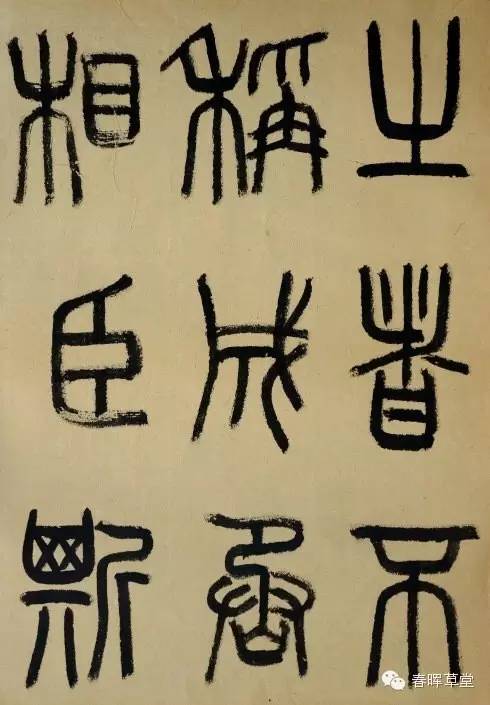 之者不
稱成
相臣斯
春晖草堂